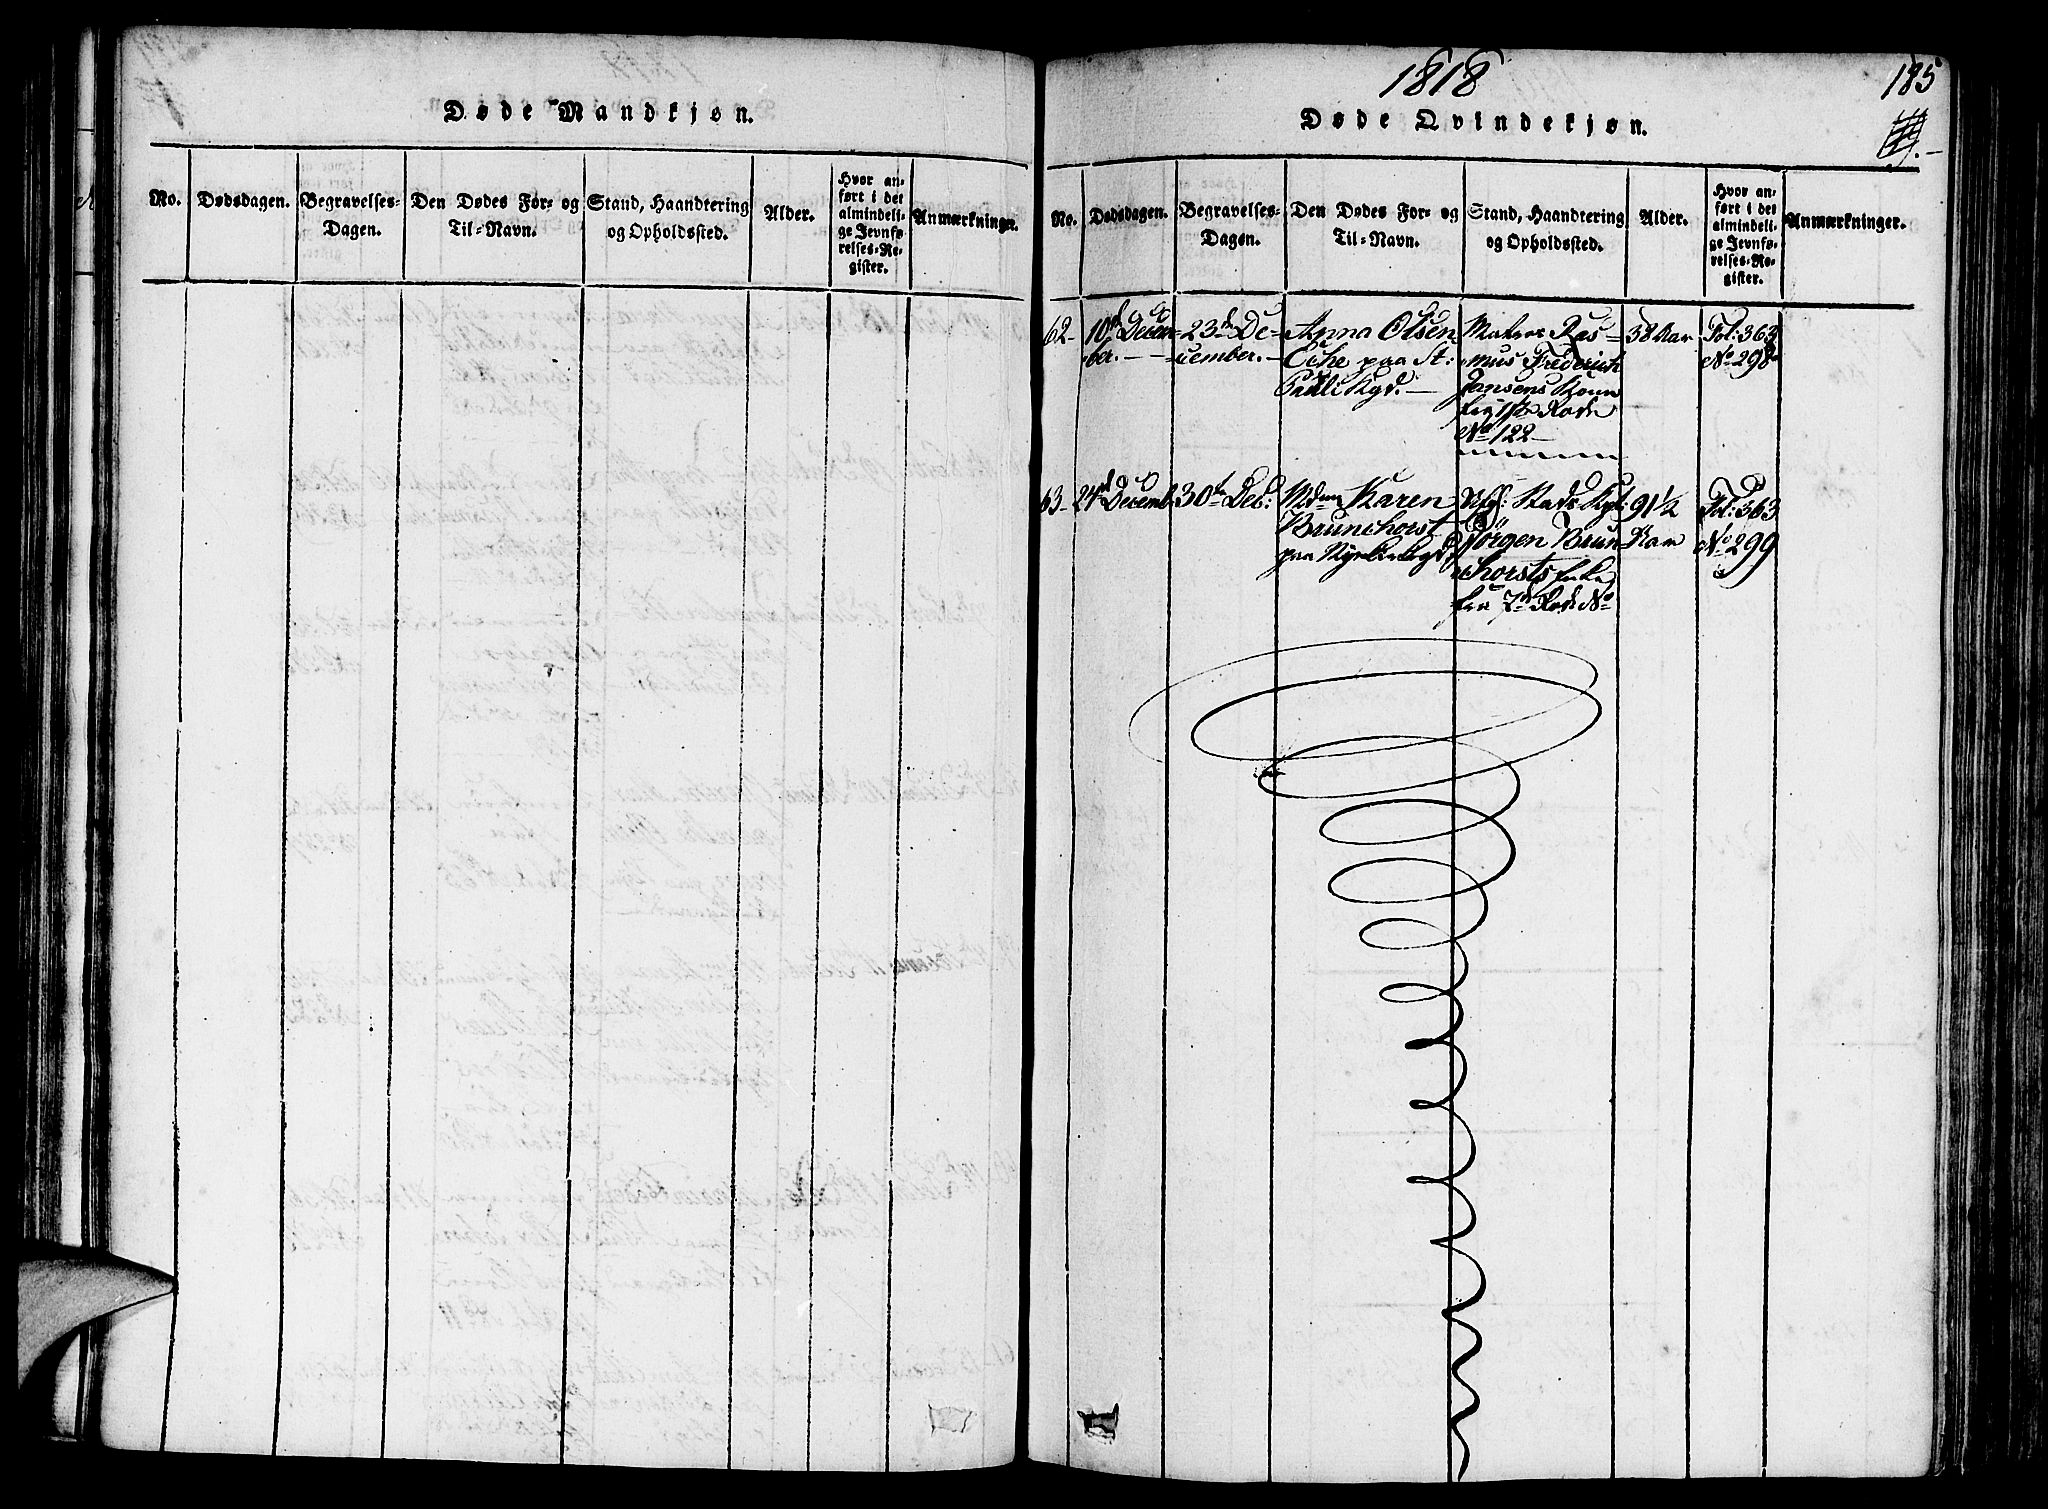 Døde Mandkjøn.
No.
Dødsdagen.
Begravelses-
Dagen.
Den Dødes For- og
Til-Navn.
Stand, Haandtering
og Opholdssted.
Alder.
Hvor an-
ført i det
almindeli-
ge Jevnfø-
relses-Re-
gister.
Anmærkninger.
1818
185
Døde Qvindekjøn.
No.
Dødsdagen.
Begravelses-
Dagen.
Den Dødes For- og
Til-Navn.
Stand, Haandtering
og Opholdssted.
Alder.
Hvor an-
ført i det
almindeli-
ge Jevnfø-
relses-Re-
gister.
Anmærkninger.
62-
10de Decem-
ber.
23de De-
cember.
Anna Olsen
paa St:
Pauli Kgd.
Matros Ras-
mus Frederich
Jansens Kone
fra 1ste Rode
No 122
38 Aar
Fol: 363
No 298
63-
24de Decemb
30te Dec:
Mdm Karen
Brunchorst
paa Nykirkegd
Jørgen Brun-
chorsts Enke
fra 7de Rode No
91 1/2
Aar
Fol: 363
No 299